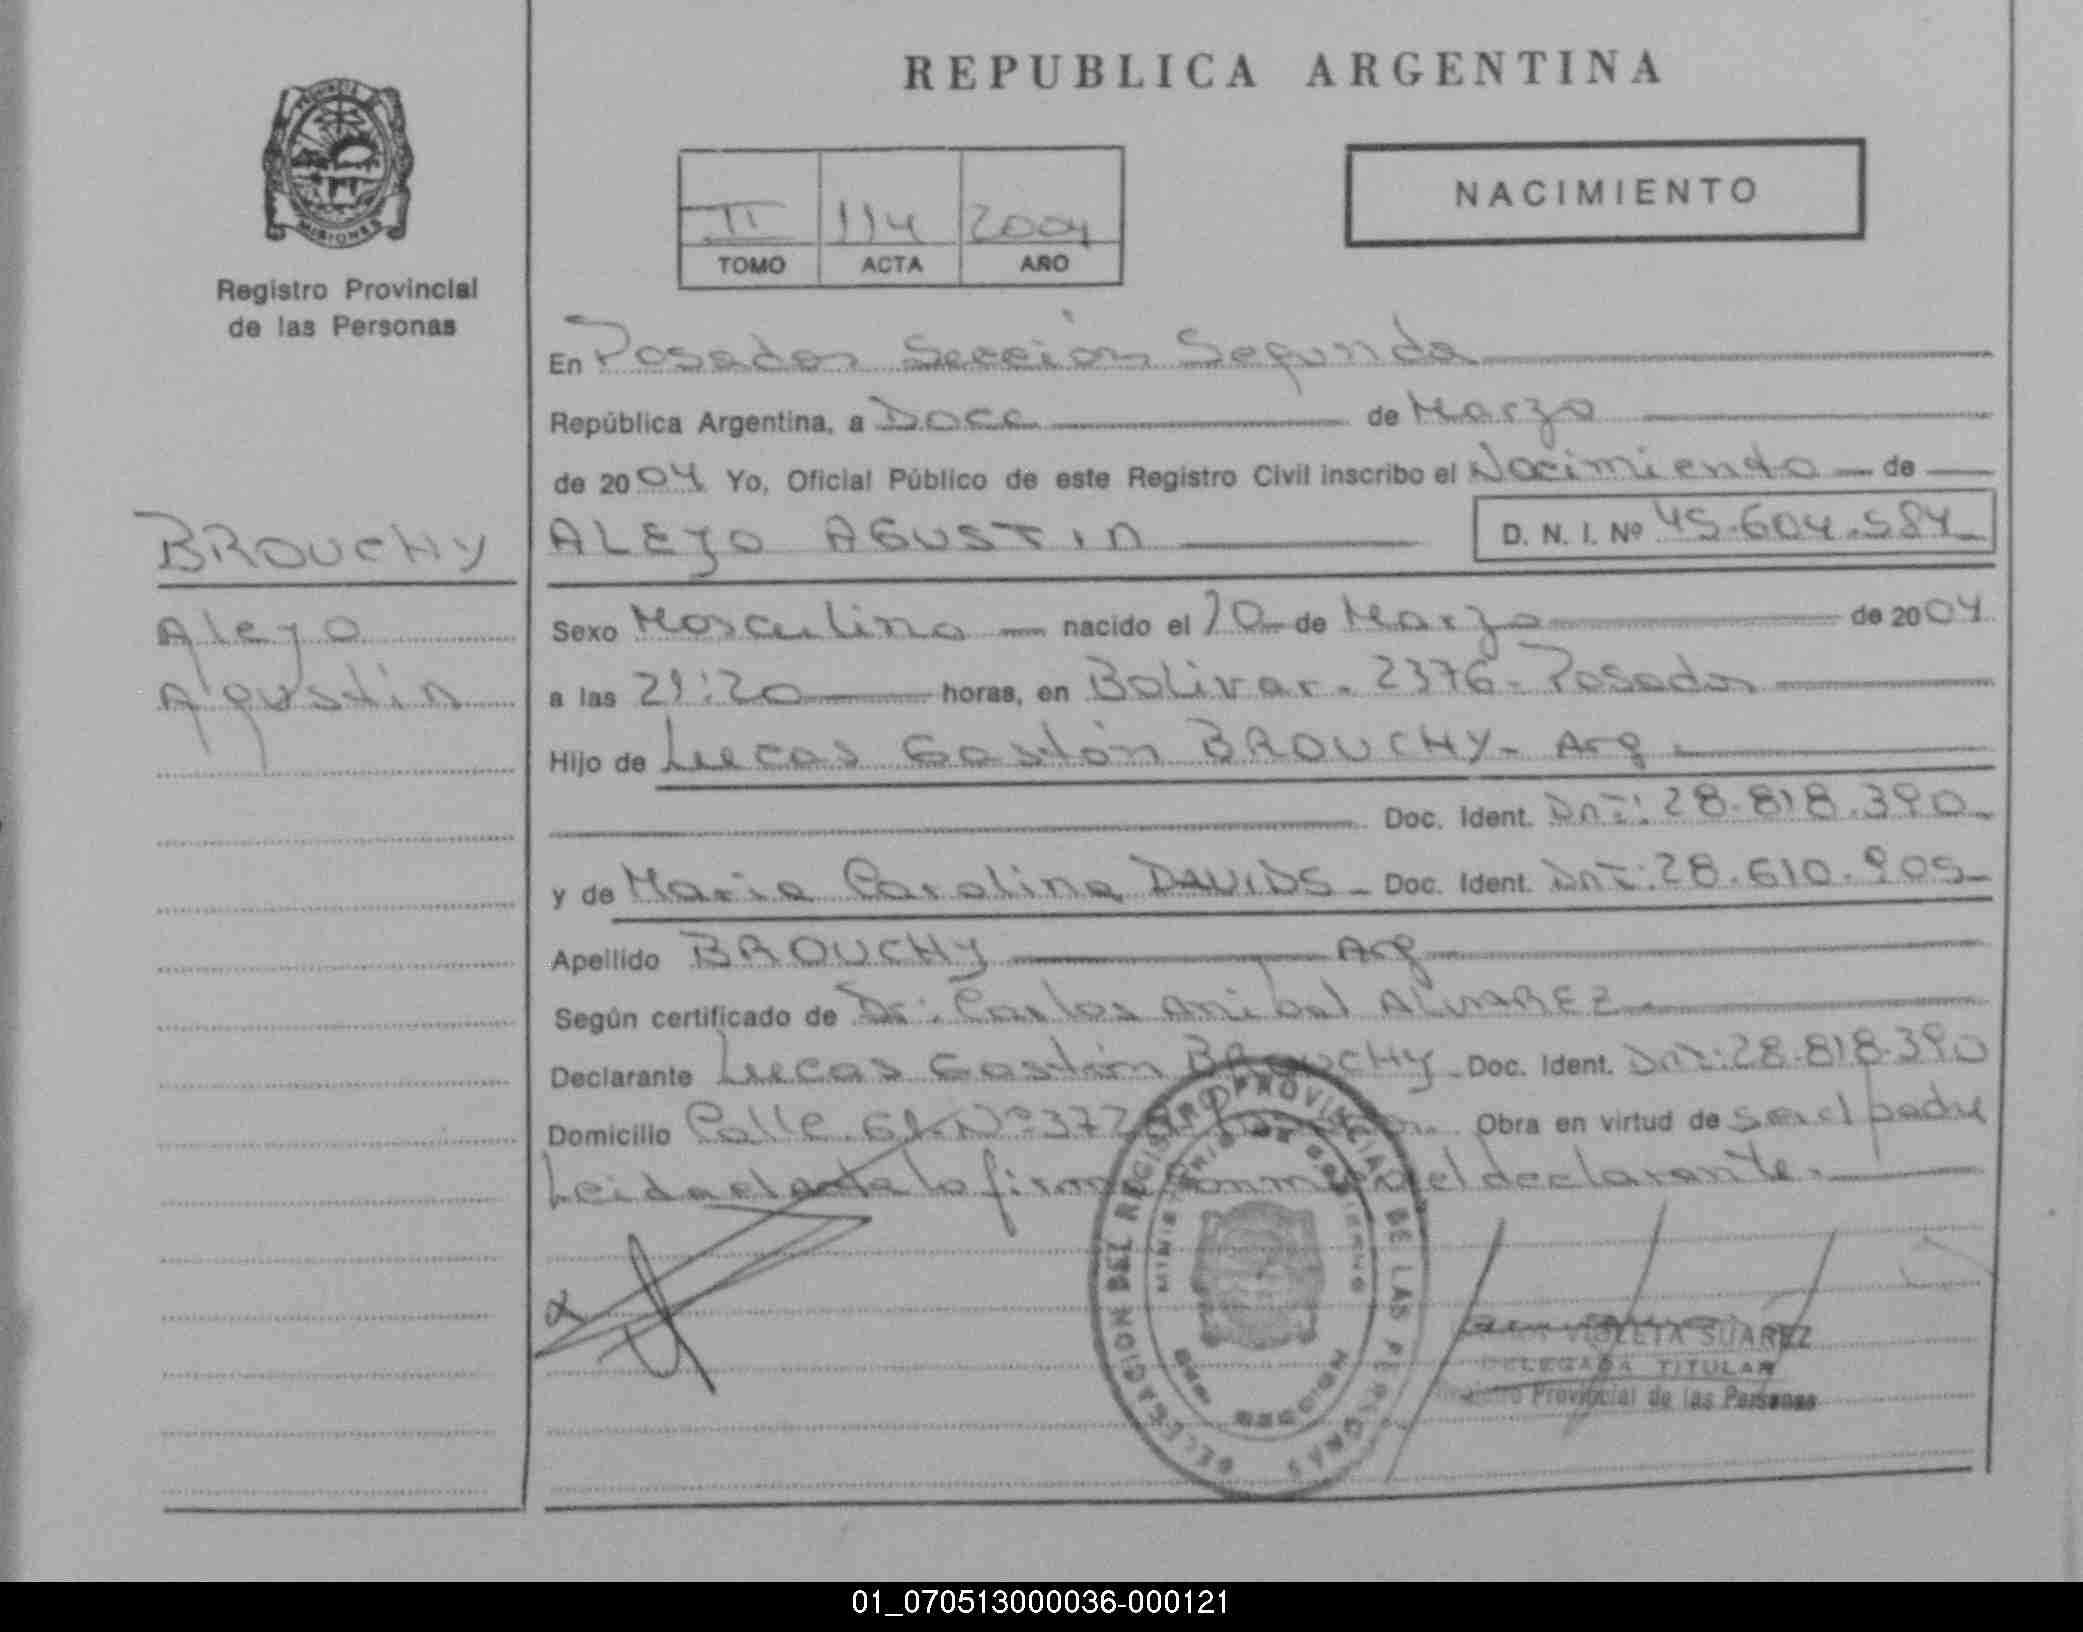 REPUBLICA ARGENTINA
PROVINCIA
MISIONES
Registro Provincial
de las Personas
II 114 2004
TOMO ACTA AÑO
NACIMIENTO
En Posadas Sección Segunda
República Argentina, a Doce de Marzo
de 2004 Yo, Oficial Público de este Registro Civil inscribo el Nacimiento de
BROUCHY
Alejo
Agustín
ALEJO AGUSTIN D. N. I. Nº 45.604.584
Sexo Masculino nacido el 10 de Marzo de 2004
a las 21:20 horas, en Bolivar. 2376- Posadas
Hijo de Lucas Gastón BROUCHY- Arg
Doc. Ident. DNI: 28.818.390
y de Maria Carolina DAVIDS- Doc. Ident. DNI: 28.610.905
Apellido BROUCHY Arg
Según certificado de Dr: Carlos Anibal ALVAREZ
Declarante Lucas Gastón BROUCHY- Doc. Ident. DNI: 28.818.390
Domicilio Calle Nº Obra en virtud de ser el padre
Leida el acta la firma conmigo el declarante.
DELEGACION DEL REGISTRO PROVINCIAL DE LAS PERSONAS
MINISTERIO DE GOBIERNO
MISIONES
VIOLETA SUAREZ
DELEGADA TITULAR
Registro Provincial de las Personas
01_070513000036-000121